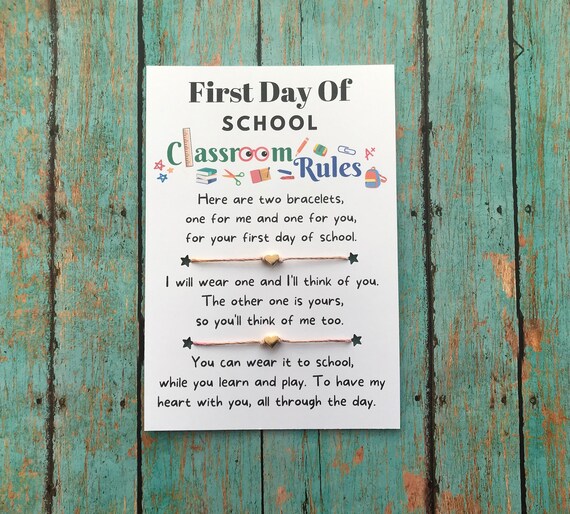 First Day Of
SCHOOL
Classroom
Rules
A+
Here are two bracelets,
one for me and one for you,
for your first day of school.
I will wear one and I'll think of you.
The other one is yours,
so you'll think of me too.
You can wear it to school,
while you learn and play. To have my
heart with you, all through the day.